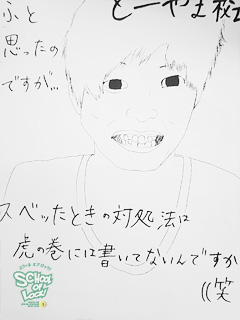 ふと
思ったの
ですが…
とーやま校
スベッたときの対処法は
虎の巻には書いてないんですか
((笑
SCHOOL
OF
LOCK!